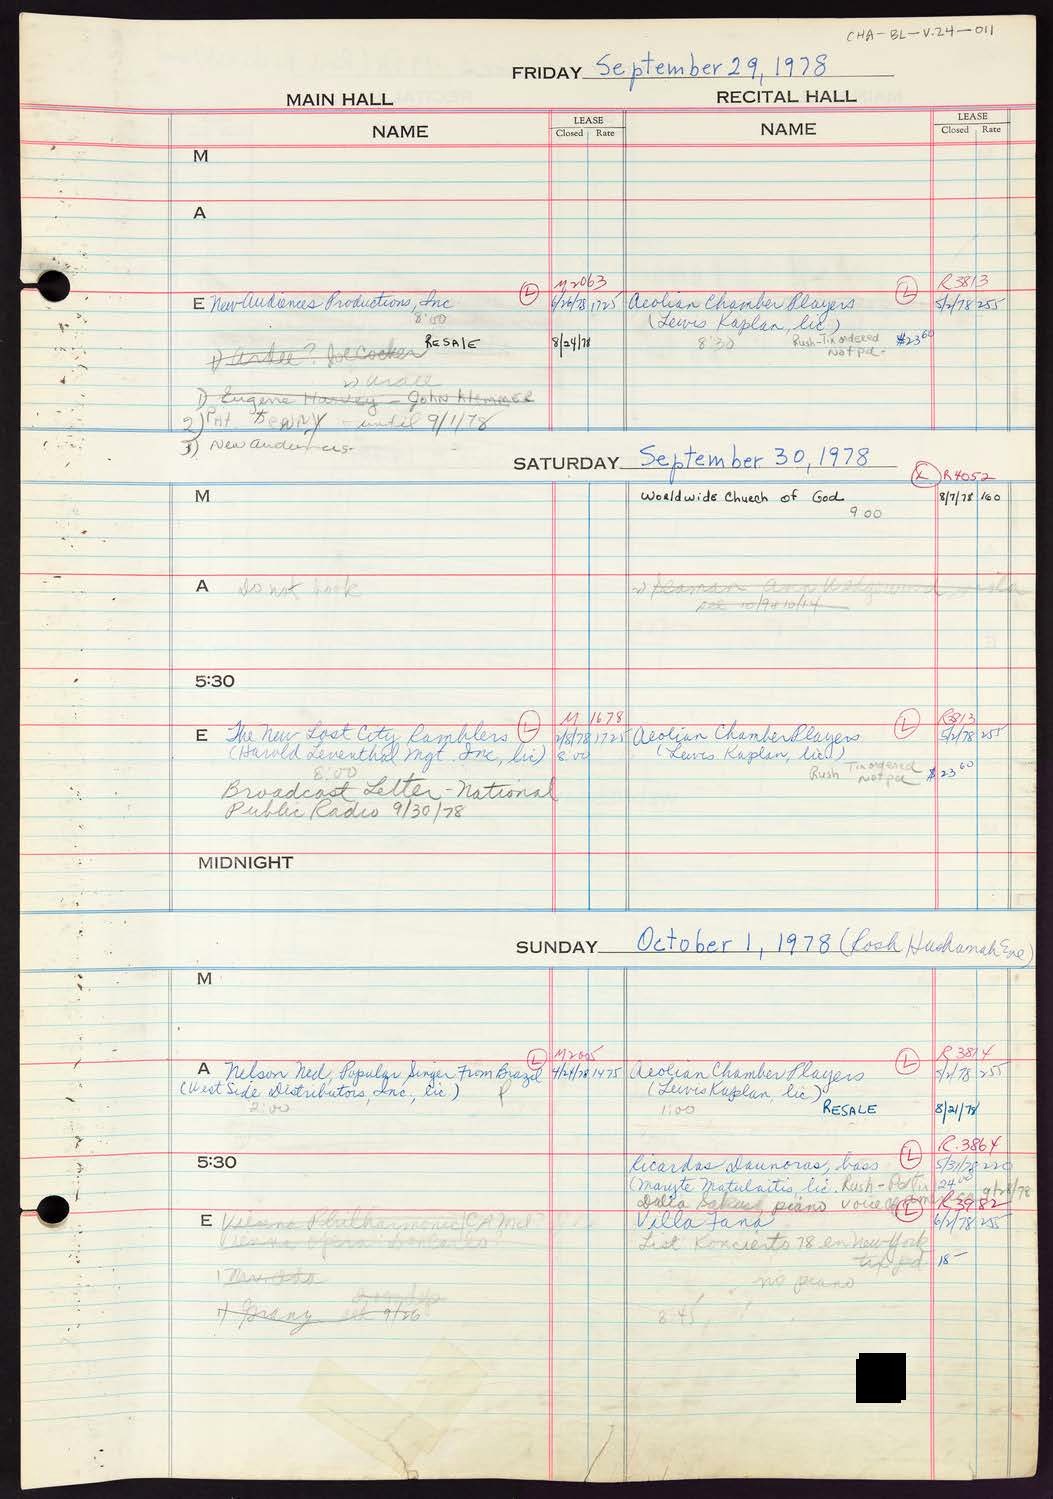 CHA-BL-V.24-011
FRIDAY September 29, 1978
MAIN HALL
RECITAL HALL
NAME
LEASE
Closed Rate
NAME
LEASE
Closed Rate
M
A
M2063
R3813
E New Audiences Productions, Inc (L) 6/26/78 1725
Aeolian Chamber Players (L) 5/2/78 255
8:00
(Lewis Kaplan, lic)
RESALE 8/24/78
8:30 Rush-Tix ordered $23.60
Not pd-
1) Joe Cocker
1) Eugene Harvey - John Klemmer
2) Pat Kenny - until 9/1/78
3) New Audiences
SATURDAY September 30, 1978
(L) R4052
M
Worldwide Church of God 8/7/78 160
9:00
A Do not book
see 10/9 + 10/14
5:30
M 1678
R3813
E The New Lost City Ramblers (L) 2/8/78 1725
Aeolian Chamber Players (L) 5/2/78 255
(Harold Leventhal Mgt. Inc, lic) 8:00
(Lewis Kaplan, lic)
8:00
Rush Tix ordered $23.60
Not pd
Broadcast Letter - National
Public Radio 9/30/78
MIDNIGHT
SUNDAY October 1, 1978 (Rosh Hashanah Eve)
M
M2005
R3814
A Nelson Ned, Popular Singer From Brazil (L) 4/21/78 1475
Aeolian Chamber Players (L) 5/2/78 255
(West Side Distributors, Inc., lic)
(Lewis Kaplan, lic)
2:00
1:00 RESALE 8/21/78
R.3864
5:30
Ricardas Daunoras, bass (L) 5/31/78 220
(Maryte Matulaitis, lic. Rush - 24.00
Dalia piano voice 9/28/78
(L) R3982
E Philharmonic
Villa Fana 6/2/78 255
Vienna Opera
List Koncierto 78 en New York
tix pd 18-
no piano
1) Granz 9/26
8:45